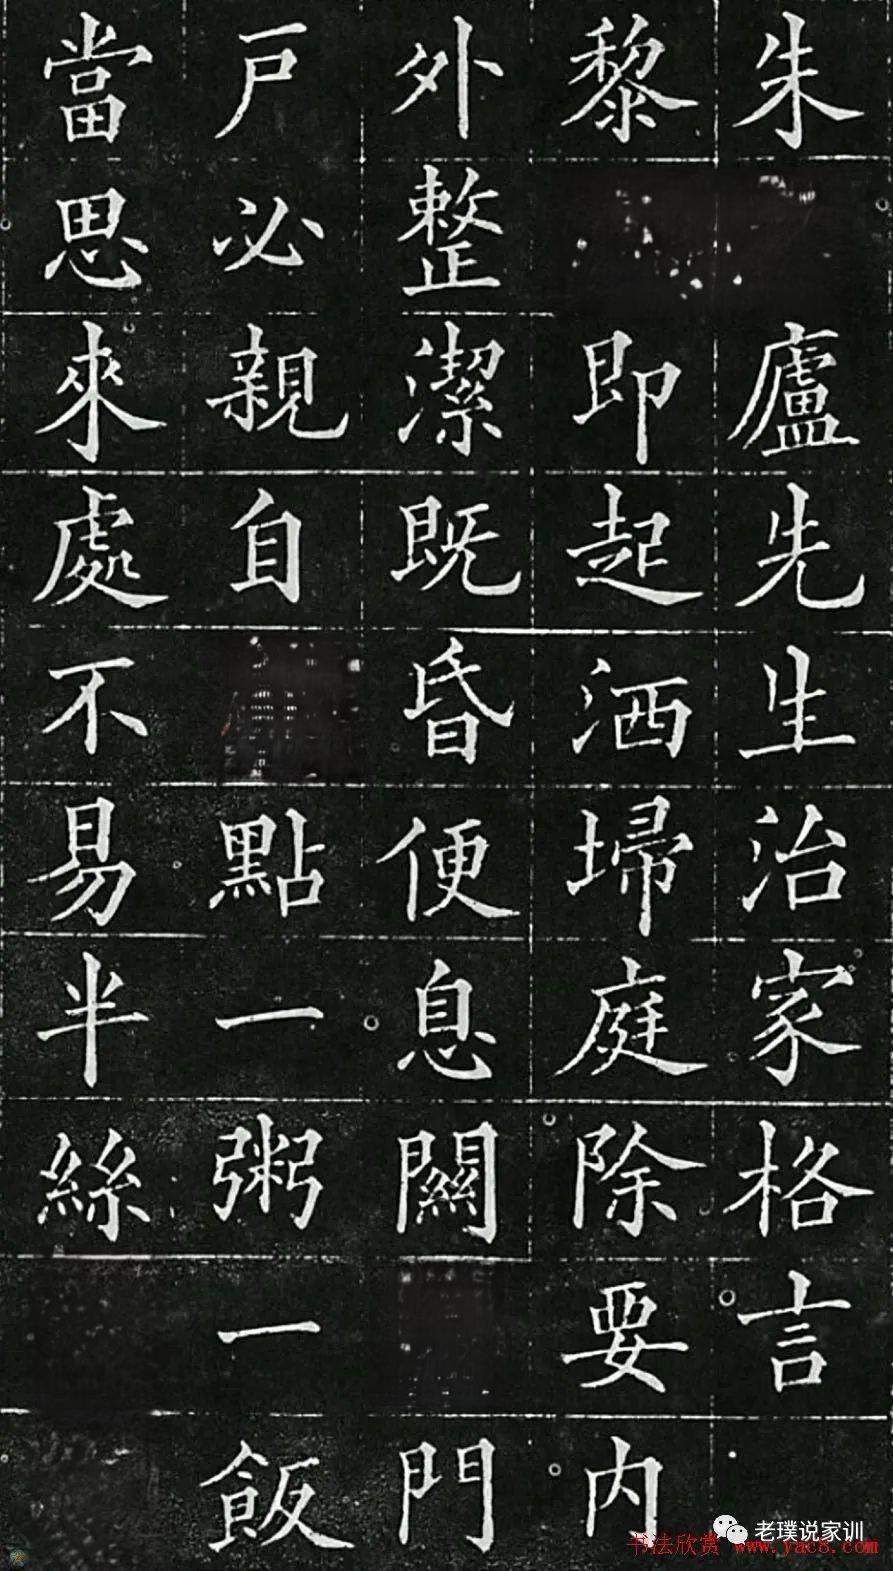 朱廬先生治家格言
黎即起洒埽庭除要内
外整潔既昏便息關門
戶必親自點一粥一飯
當思來處不易半絲
老璞说家训
书法欣赏 www.yac8.com